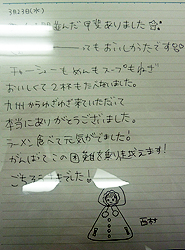 3月23日(水)
んだ甲斐ありました
ーーってもおいしかったです
チャーシューもめんもスープもねぎ
おいしくて2杯もたべました。
九州からわざわざ来ていただいて
本当にありがとうございます。
ラーメン食べて元気がでました!
がんばってこの困難を乗り越えます!
ごちそうさまでした!
西村